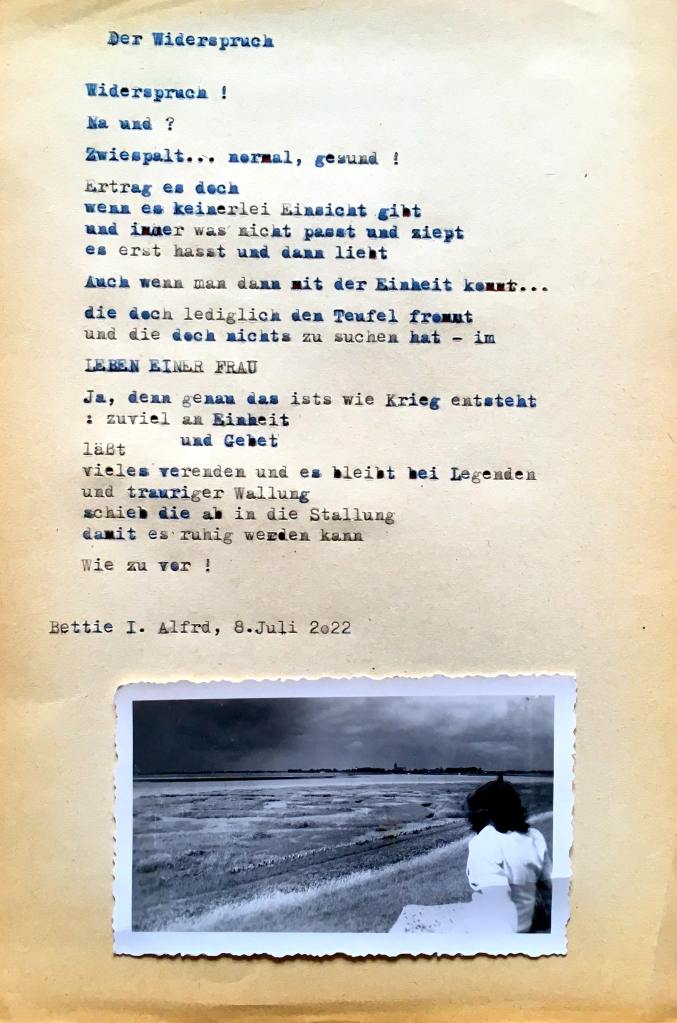 Der Widerspruch
Widerspruch !
Na und ?
Zwiespalt... normal, gesund !
Ertrag es doch
wenn es keinerlei Einsicht gibt
und immer was nicht passt und ziept
es erst hasst und dann liebt
Auch wenn man dann mit der Einheit kommt...
die doch lediglich den Teufel frommt
und die doch nichts zu suchen hat - im
LEBEN EINER FRAU
Ja, denn genau das ists wie Krieg entsteht
: zuviel an Einheit
und Gebet
läßt
vieles verenden und es bleibt bei Legenden
und trauriger Wallung
schieb die ab in die Stallung
damit es ruhig werden kann
Wie zu vor !
Bettie I. Alfrd, 8.Juli 2o22